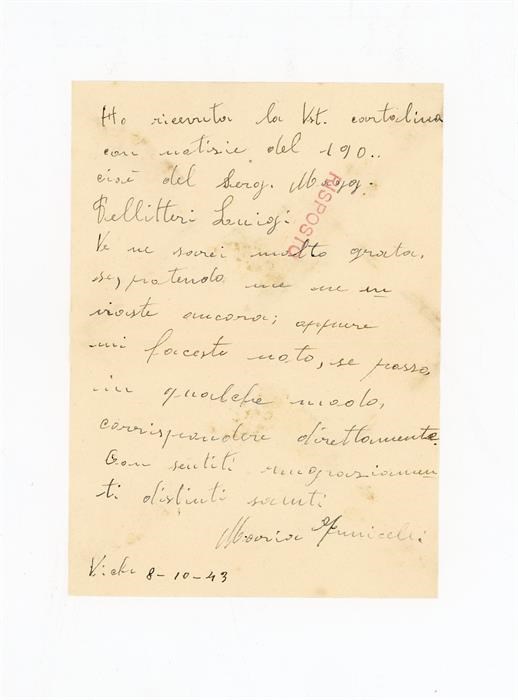 Ho ricevuta la Vst. cartolina
con notizie del 190..
cioè del Serg. Magg.
Pellitteri Luigi.
RISPOSTO
Ve ne sarei molto grata,
se, potendo me ne in
viaste ancora; oppure
mi faceste noto, se posso,
in qualche modo,
corrispondere direttamente.
Con sentiti ringraziamen
ti distinti saluti
Maria
8-10-43